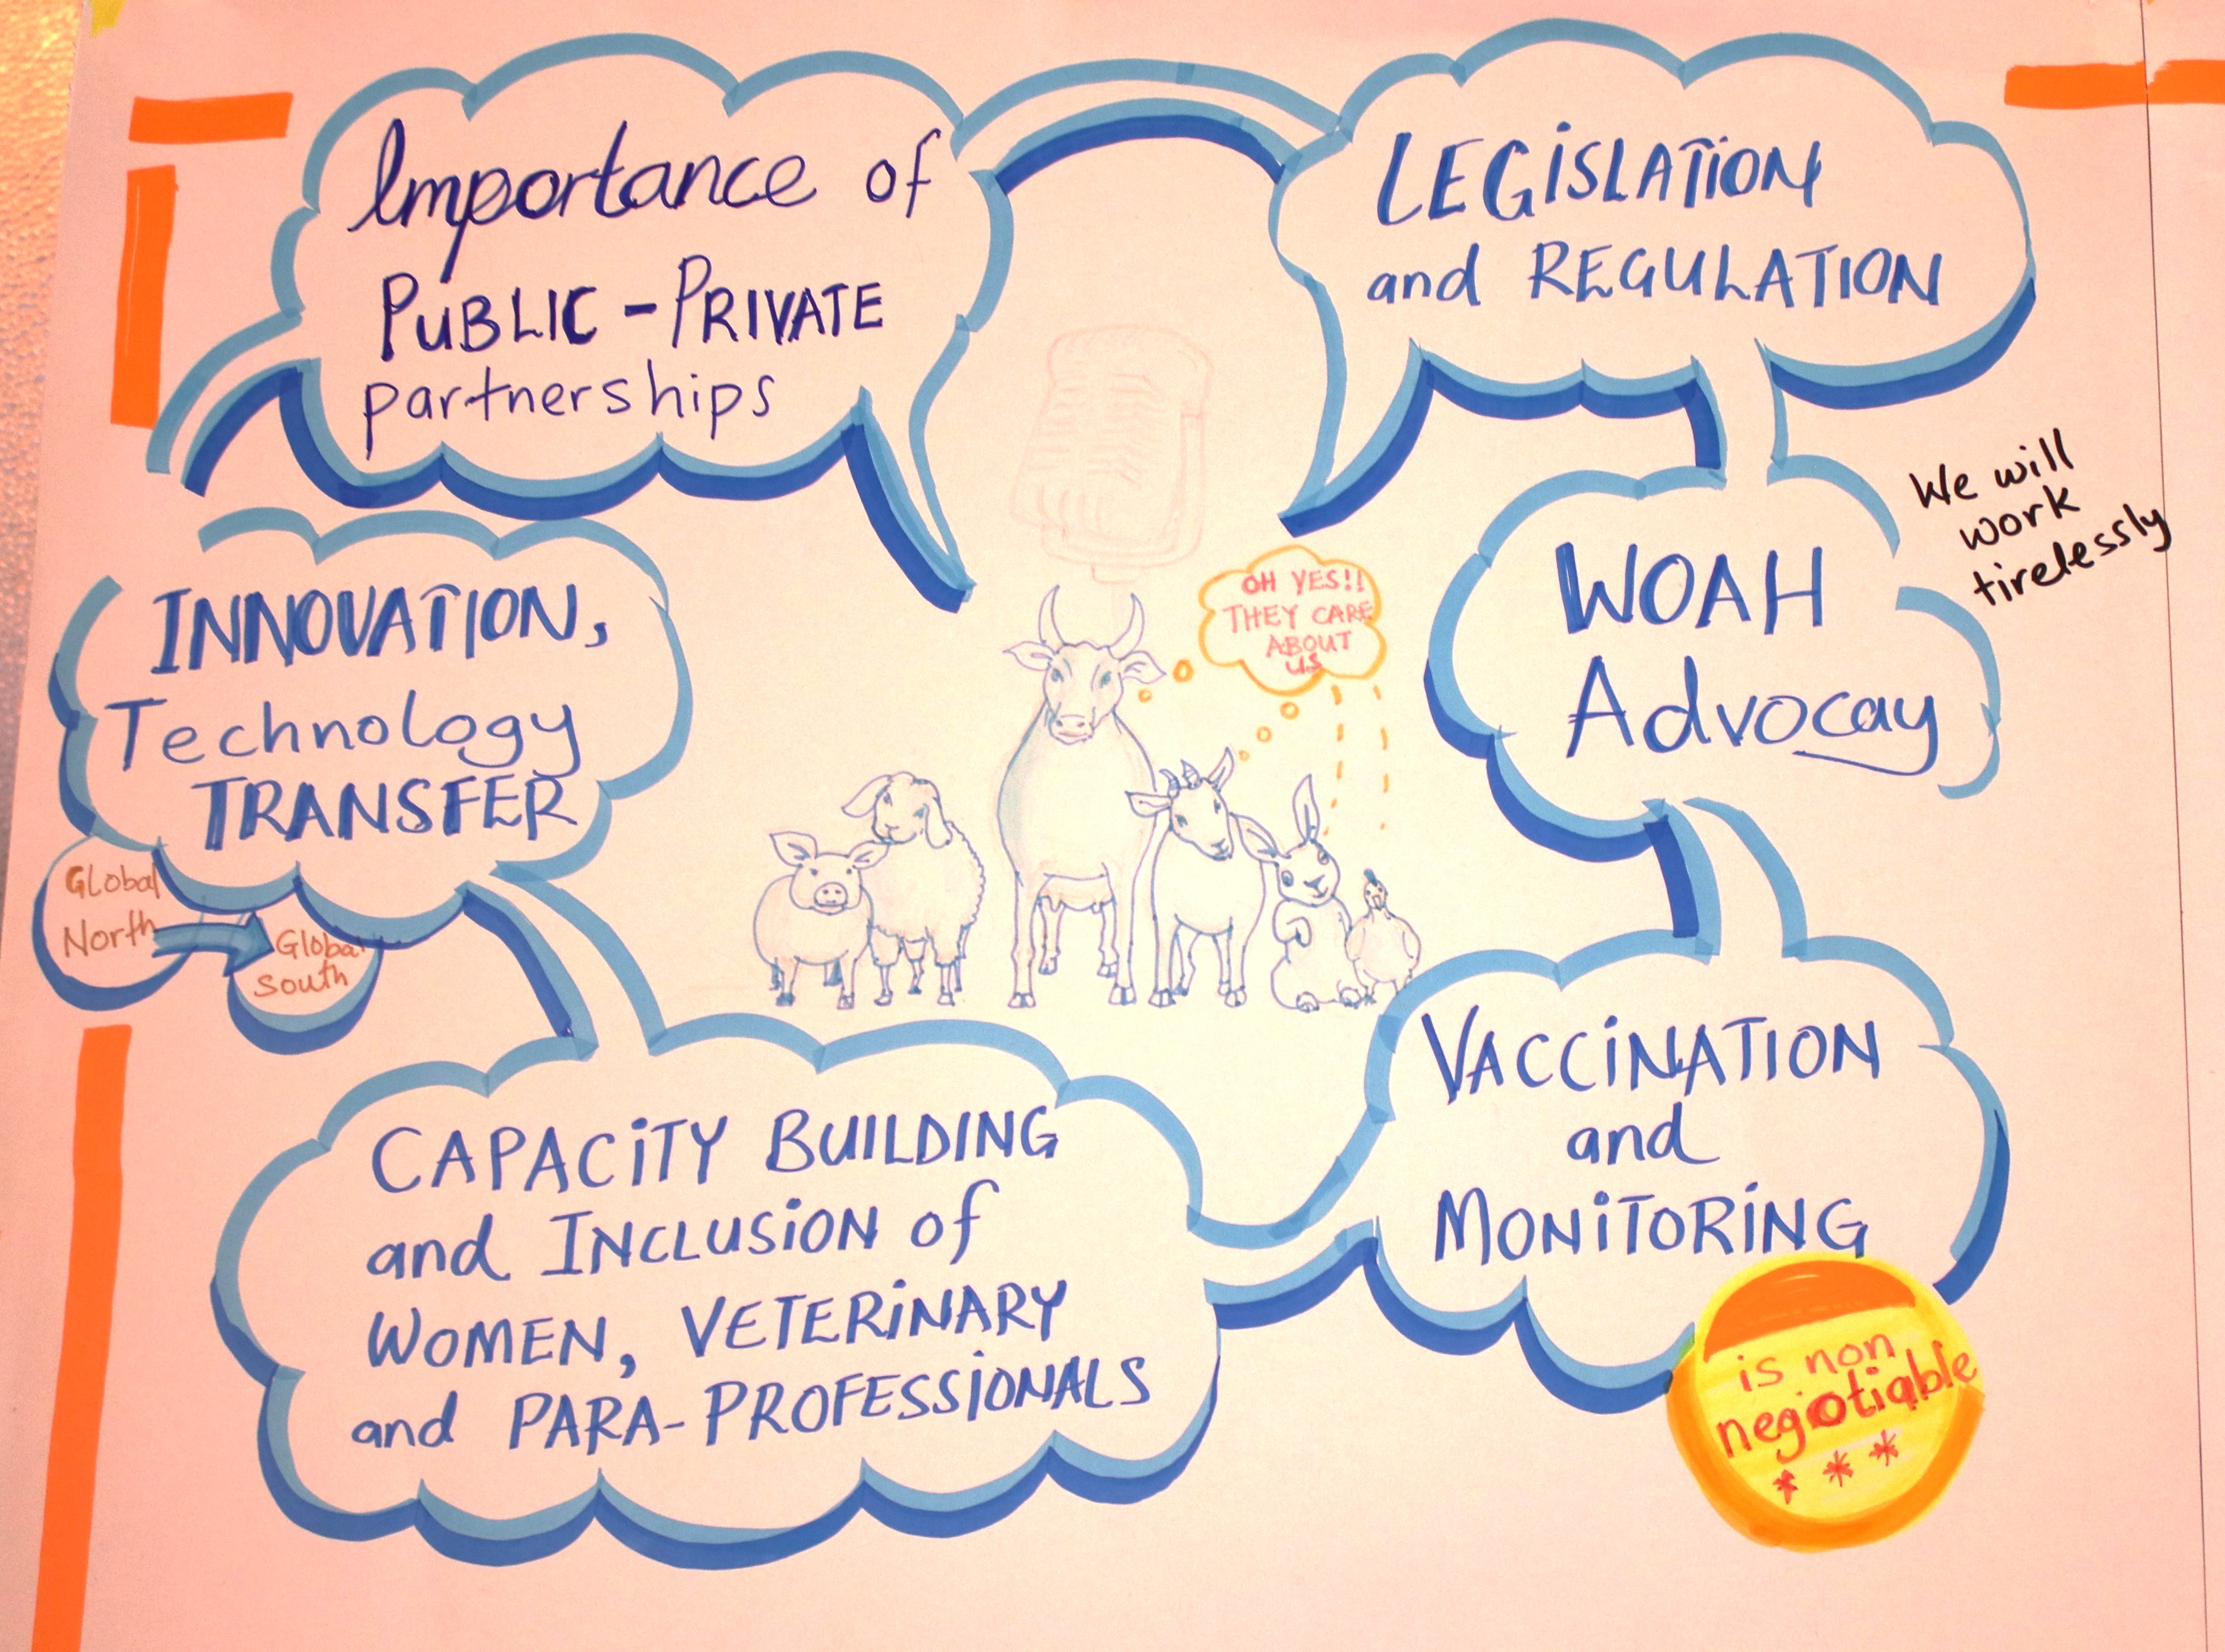 Importance of
PUBLIC-PRIVATE
partnerships
LEGISLATION
and REGULATION
INNOVATION,
Technology
TRANSFER
Global
North
Global
South
OH YES!!
THEY CARE
ABOUT
US
WOAH
Advocay
We will
work
tirelessly
CAPACITY BUILDING
and INCLUSION of
WOMEN, VETERINARY
and PARA-PROFESSIONALS
VACCINATION
and
MONITORING
is non
negotiable
***